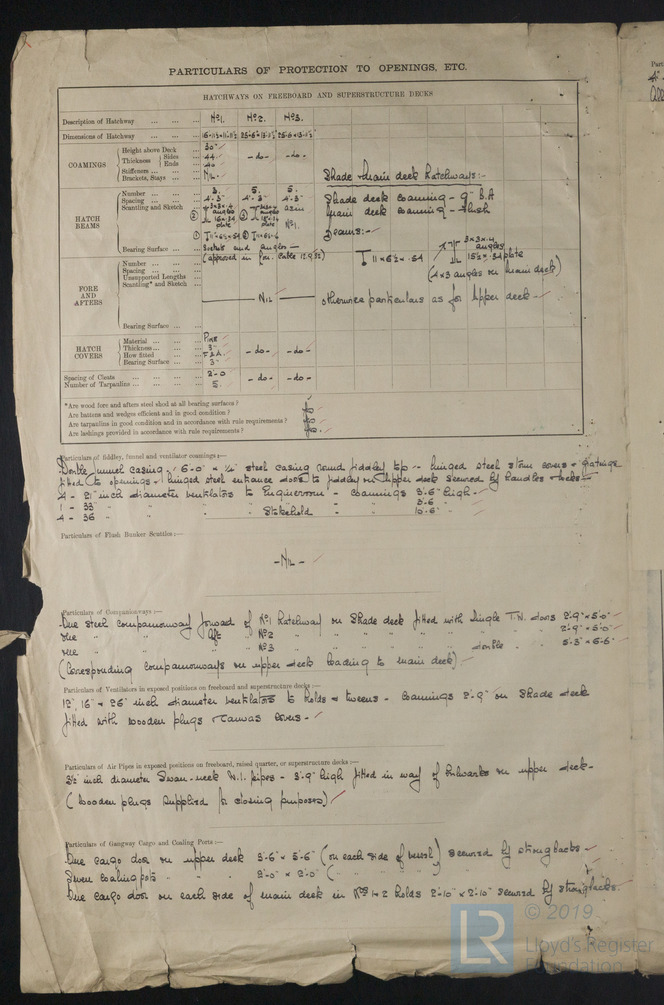 PARTICULARS OF PROTECTION TO OPENINGS, ETC.
HATCHWAYS ON FREEBOARD AND SUPERSTRUCTURE DECKS
Description of Hatchway ... ... ... No 1. No 2. No 3.
Dimensions of Hatchway ... ... ...
COAMINGS
Height above Deck 30"
Thickness { Sides .44 -do- -do-
Ends .40
Stiffeners ... ...
Brackets, Stays ... ... NIL.
Shade & main deck hatchways:-
HATCH BEAMS
Number ... ... ... 3. 5. 5.
Spacing ... ... ... 4'.3" 4'.3" 4'.3"
Scantling and Sketch
3×3×.4 angles
plate
as in No 1.
Shade deck coaming - 9" B.A
Main deck coaming - flush
Beams:-
11 × 6½ × .54
3×3×.4 angles
15½ × .34 plate
(4×3 angles on main deck)
Bearing Surface ... ... Sockets and angles
FORE AND AFTERS
Number ... ... ...
Spacing ... ... ...
Unsupported Lengths ...
Scantling* and Sketch ...
NIL
otherwise particulars as for upper deck -
Bearing Surface ... ...
HATCH COVERS
Material ... ... ... Pine
Thickness ... ... ... 3"
How fitted ... ... F & A -do- -do-
Bearing Surface ... ... 3"
Spacing of Cleats ... ... ... 2'-0
Number of Tarpaulins ... ... ... 5. -do- -do-
*Are wood fore and afters steel shod at all bearing surfaces?
Are battens and wedges efficient and in good condition?
Are tarpaulins in good condition and in accordance with rule requirements?
Are lashings provided in accordance with rule requirements?
Particulars of fiddley, funnel and ventilator coamings :—
Double funnel casing, 6'-0" × ¼" steel casing round fiddley top - hinged steel storm covers & gratings
fitted to openings - hinged steel entrance doors to fiddley on upper deck secured by handles & locks -
4 - 21" inch diameter ventilators to Engineroom - coamings 8'-6" high -
1 - 33" " " " " " 8'-6"
4 - 36" " " " Stokehold " " 10'-6"
Particulars of Flush Bunker Scuttles :—
- NIL -
Particulars of Companionways :—
One steel companionway forward of No 1 hatchway on Shade deck fitted with single T.N. doors 2'-9" × 5'-0"
One " " Aft " No 2 " " " " " " " " 2'-9" × 5'-0"
One " " " No 3 " " " " " double " " 5'-3" × 6'-6"
(Corresponding companionways on upper deck leading to main deck)
Particulars of Ventilators in exposed positions on freeboard and superstructure decks :—
12", 16" & 26" inch diameter ventilators to holds & tweens - coamings 2'-9" on Shade deck
fitted with wooden plugs & canvas covers -
Particulars of Air Pipes in exposed positions on freeboard, raised quarter, or superstructure decks :—
3½ inch diameter Swan-neck W.I. pipes - 3'-9" high fitted in way of bulwarks on upper deck -
(wooden plugs supplied for closing purposes)
Particulars of Gangway Cargo and Coaling Ports :—
One cargo door on upper deck 3'-6" × 5'-6" (on each side of vessel) secured by strongbacks -
Seven coaling ports " " 2'-0" × 2'-0" ( "
One cargo door on each side of main deck in Nos 1 & 2 holds 2'-10" × 2'-10" secured by strongbacks.
© 2019
LR
Lloyd's Register
Foundation